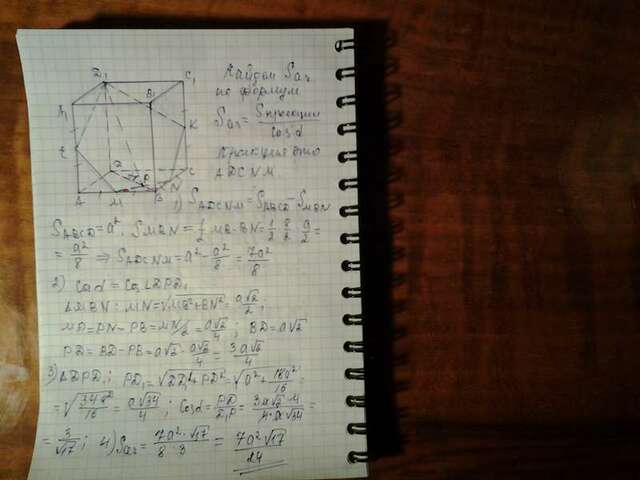 D₁ C₁
A₁ B₁
K
E
D C
P
A M B N
Найдем Sсеч
по формуле
Sсеч = Sпроекции / cos α
проекция это
ADCNM.
1) S_ADCNM = S_ABCD − S_MBN
S_ABCD = a². S_MBN = 1/2 MB·BN = 1/2 · a/2 · a/2 =
= a²/8 ⇒ S_ADCNM = a² − a²/8 = 7a²/8
2) Cos α = Cos ∠DPD₁
ΔMBN: MN = √(MB² + BN²) = a√2/2;
MP = PN = PB = MN/2 = a√2/4; BD = a√2
PD = BD − PB = a√2 − a√2/4 = 3a√2/4
3) ΔDPD₁; PD₁ = √(DD₁² + PD²) = √(a² + 18a²/16) =
= √(34a²/16) = a√34/4; Cos α = PD/D₁P = 3a√2·4/4·a√34 =
= 3/√17; 4) Sсеч = 7a²·√17/8·3 = 7a²√17/24